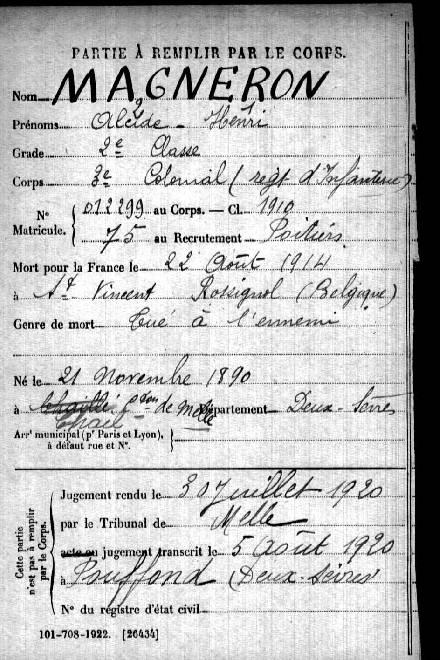 PARTIE À REMPLIR PAR LE CORPS.
Nom MAGNERON
Prénoms Alcide - Henri
Grade 2e Classe
Corps 3e Colonial (régt d'Infanterie)
Nº Matricule. 012299 au Corps. — Cl. 1910
75 au Recrutement Poitiers
Mort pour la France le 22 Août 1914
à St Vincent Rossignol (Belgique)
Genre de mort Tué à l'ennemi
Né le 21 Novembre 1890
à Chail Con de Melle Département Deux-Sèvres
Arrt municipal (pr Paris et Lyon),
à défaut rue et Nº.
Cette partie
n'est pas à remplir
par le Corps.
Jugement rendu le 30 Juillet 1920
par le Tribunal de Melle
acte ou jugement transcrit le 5 Août 1920
à Pouffond (Deux-Sèvres)
Nº du registre d'état civil
101-708-1922. [26434]